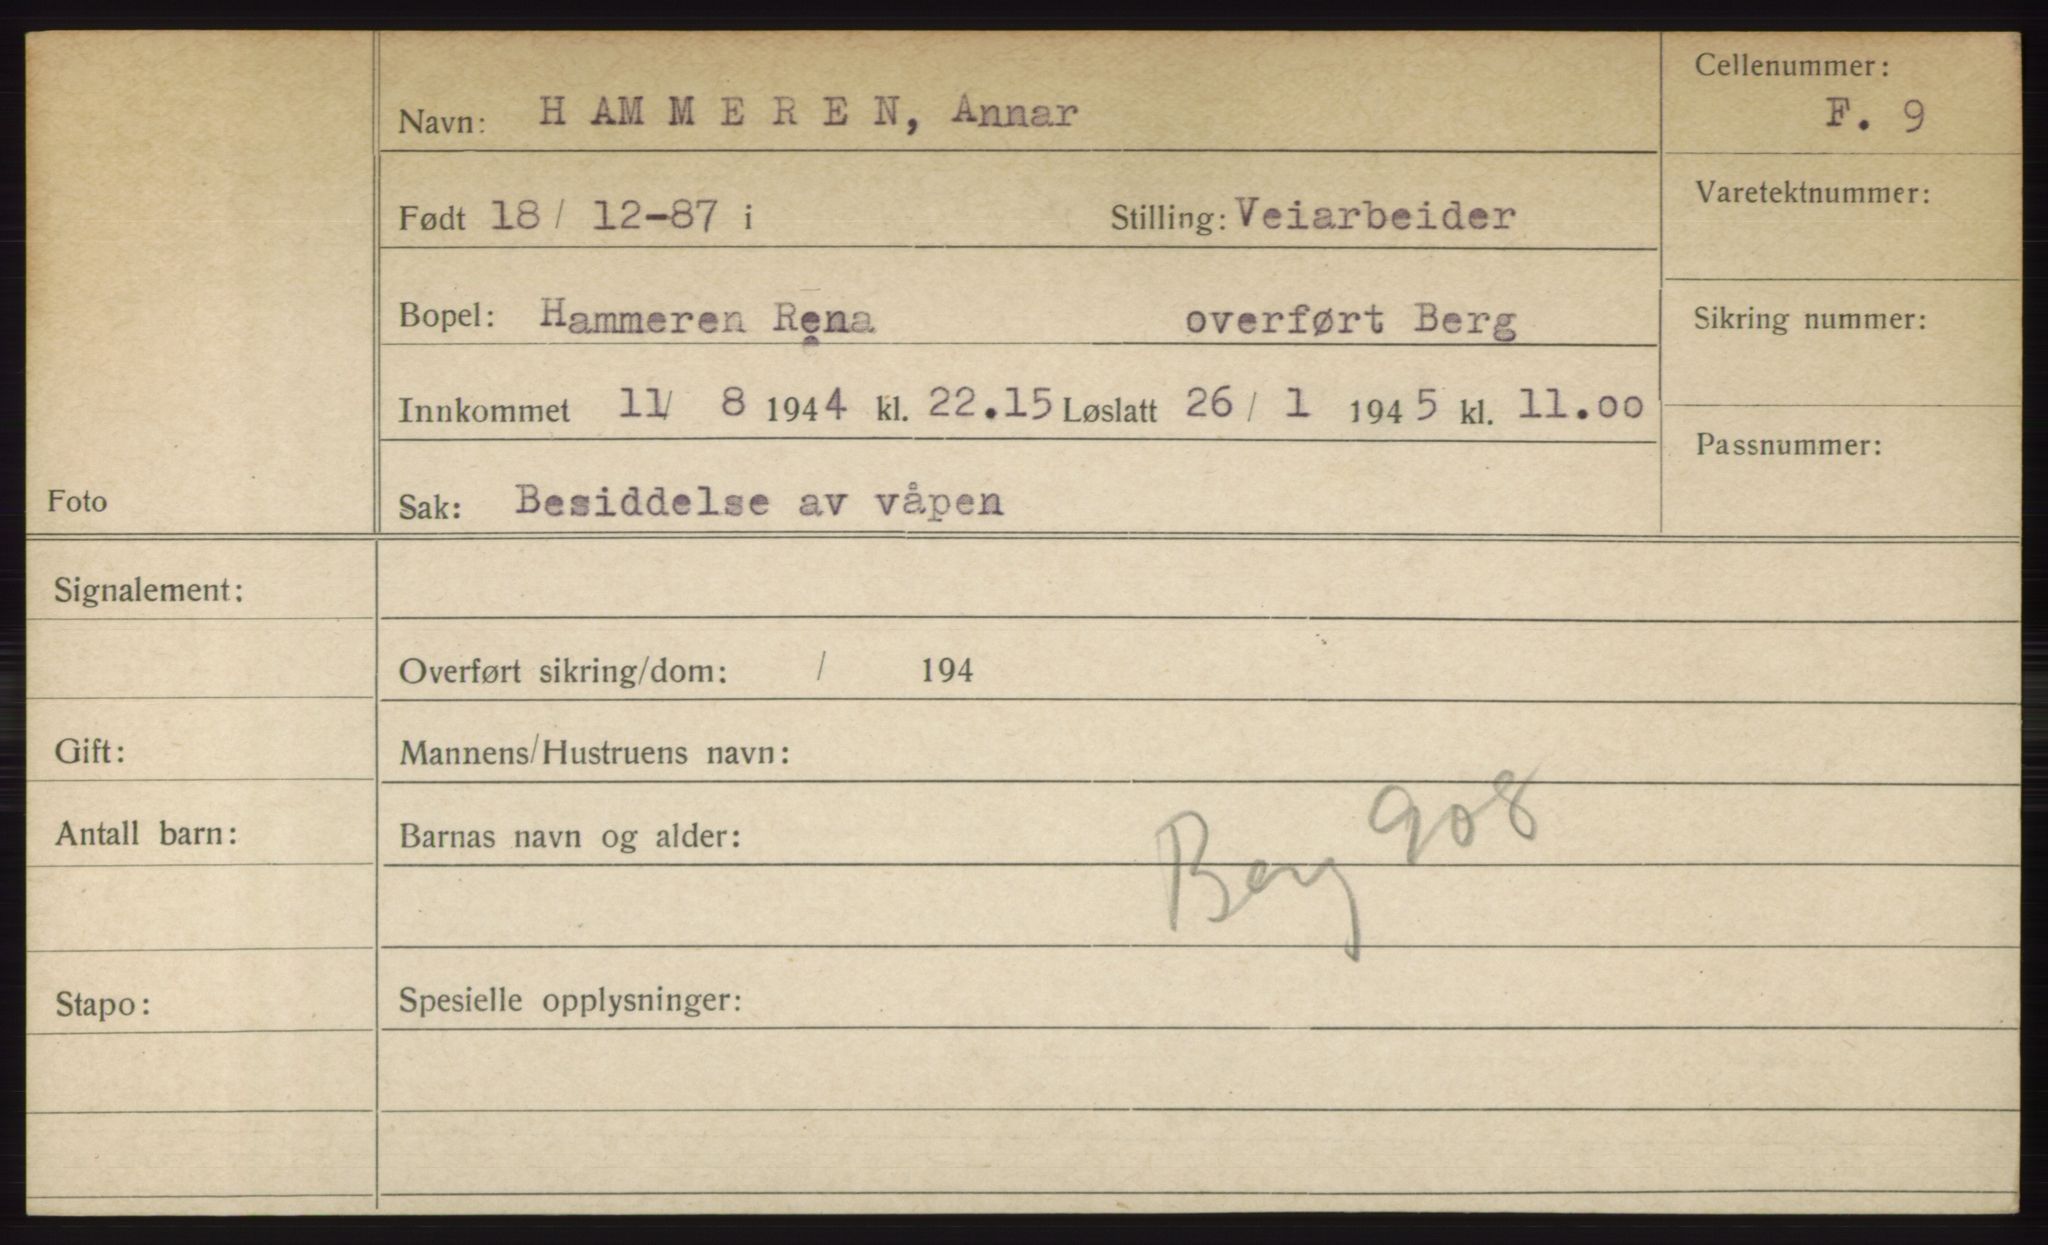 Navn: H AM M E R E N, Annar
Cellenummer:
F. 9
Født 18/ 12-87 i Stilling: Veiarbeider
Varetektnummer:
Bopel: Hammeren Rena overført Berg
Sikring nummer:
Innkommet 11/ 8 1944 kl. 22.15 Løslatt 26/ 1 1945 kl. 11.00
Passnummer:
Foto
Sak: Besiddelse av våpen
Signalement:
Overført sikring/dom: / 194
Gift: Mannens/Hustruens navn:
Antall barn: Barnas navn og alder:
Berg 908
Stapo: Spesielle opplysninger: